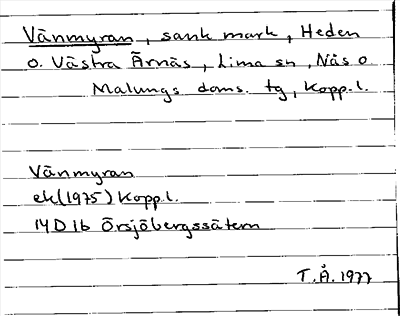 Vänmyran, sank mark, Heden
o. Västra Ärnäs, Lima sn, Nås o
Malungs doms. tg, Kopp. l.
Vänmyran
ek (1975) Kopp l.
14 D 1b Örsjöbergssätern
T. Å. 1977